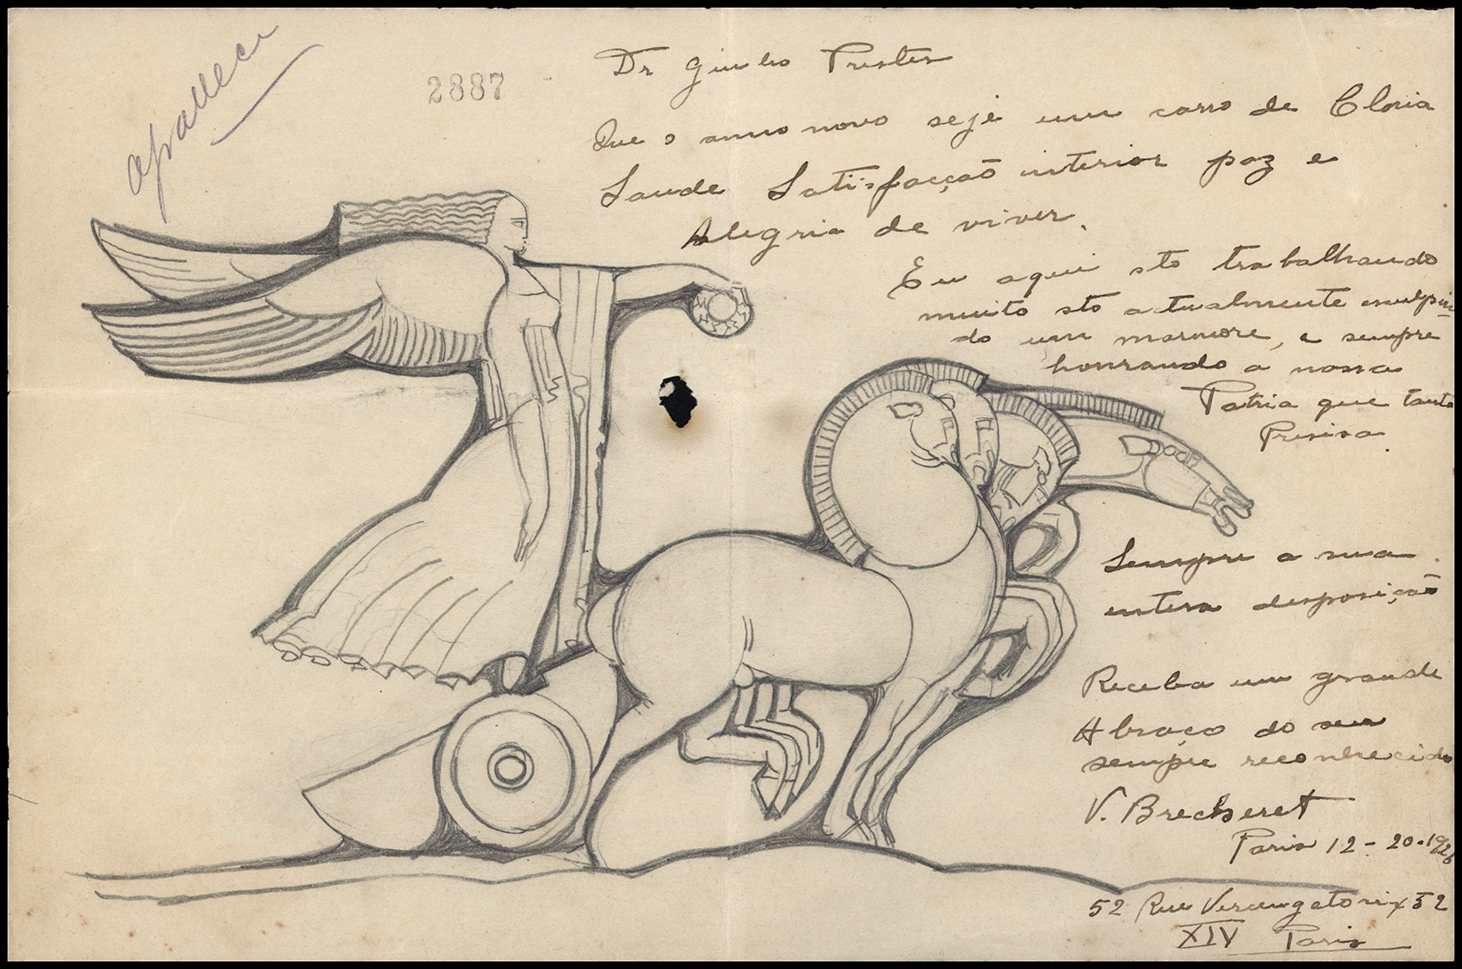 apalleci
2887
Dr Giulio Prestes
Que o anno novo seje um carro de Gloria
Saude Satisfacção interior paz e
Alegria de viver.
Eu aqui sto trabalhando
muito sto actualmente esculpin
do um marmore, e sempre
honrando a nossa
Patria que tanto
Presisa.
Sempre a sua
entera desposição
Receba um grande
Abraço do seu
sempre reconhecido
V. Brecheret
Paris 12-20-192
52 Rue Vercengetorix 52
XIV Paris